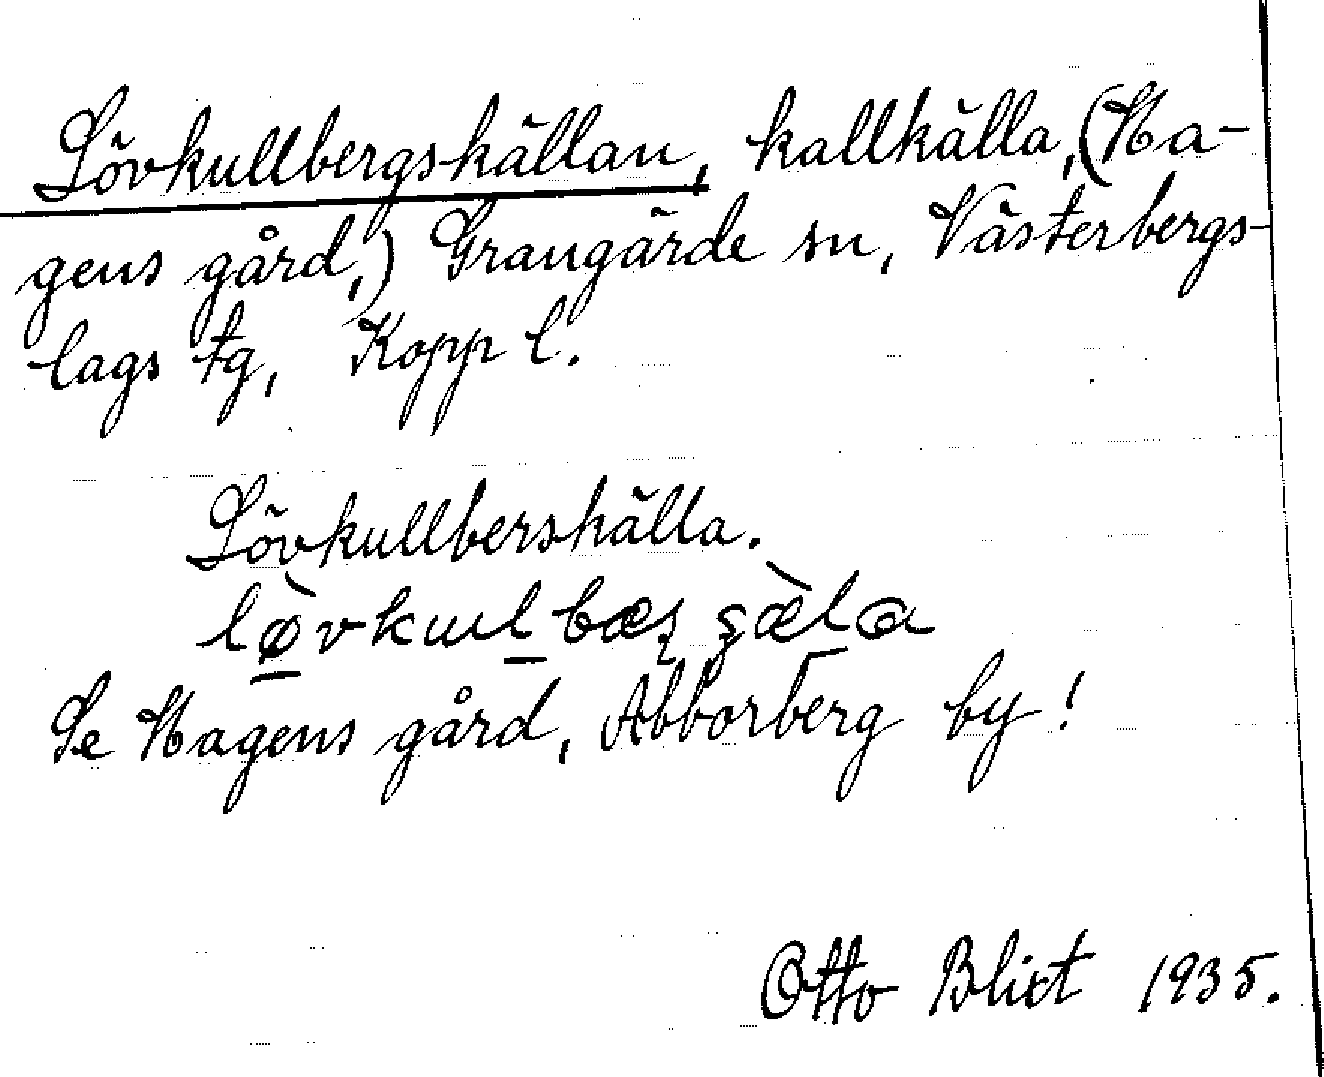 Lövkullbergskällan, kallkälla, (Ha-
gens gård,) Grangärde sn, Västerbergs-
lags fg, Kopp l.
Lövkullberskälla.
Se Hagens gård, Abborberg by!
Otto Blixt 1935.